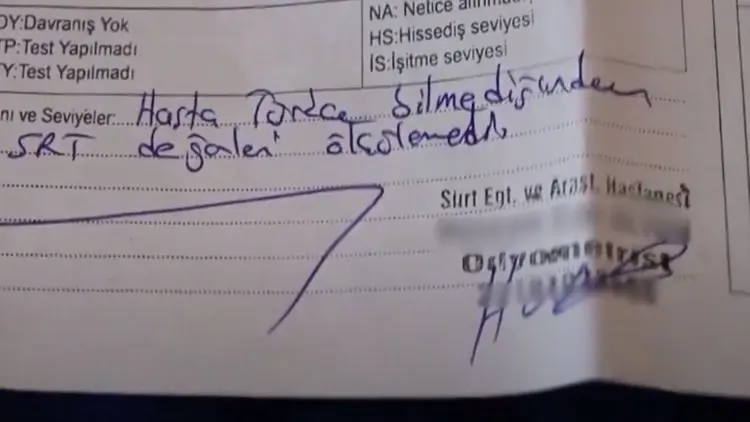 DY:Davranış Yok
TP:Test Yapılmadı
TY:Test Yapılmadı
NA: Netice alınma
HS:Hissediş seviyesi
İS:İşitme seviyesi
nı ve Seviyeler:
Hasta Türkçe bilmediğinden
SRT değerleri ölçülemedi.
Siirt Eğt. ve Araşt. Hastanesi
Odyometrist